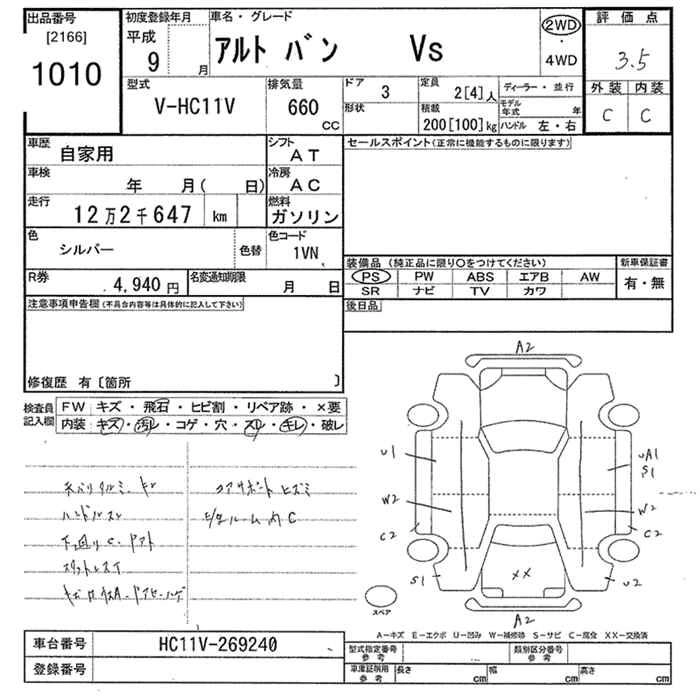 出品番号 [2166] 1010
初度登録年月 平成 9 月
車名・グレード アルト バン Vs
2WD・4WD
評価点 3.5
外装 内装
C C
型式 V-HC11V
排気量 660 CC
ドア 3
形状
定員 2[4]人
積載 200[100]kg
ディーラー・並行
モデル年式 年
ハンドル 左・右
車歴 自家用
シフト AT
車検 年 月( 日)
冷房 AC
走行 12万2千647 km
燃料 ガソリン
色 シルバー 色替
色コード 1VN
R券 4,940円
名変通知期限 月 日
セールスポイント(正常に機能するものに限ります)
装備品(純正品に限り○をつけてください)
新車保証書 有・無
PS PW ABS エアB AW
SR ナビ TV カワ
後日品
注意事項申告欄(不具合内容等は具体的に記入して下さい)
修復歴 有〔箇所 〕
検査員記入欄
FW キズ・飛石・ヒビ割・リペア跡・×要
内装 キズ・汚レ・コゲ・穴・スレ・キレ・破レ
ハンドルスレ
コアサポートヒズミ
A2
U1
UA1
S1
W2
W2
C2
C2
S1
XX
U2
A2
スペア
A-キズ E-エクボ U-凹み W-補修跡 S-サビ C-腐食 XX-交換済
車台番号 HC11V-269240
登録番号
型式指定番号 参考
類別区分番号 参考
車庫証明用 参考 長さ cm 幅 cm 高さ cm